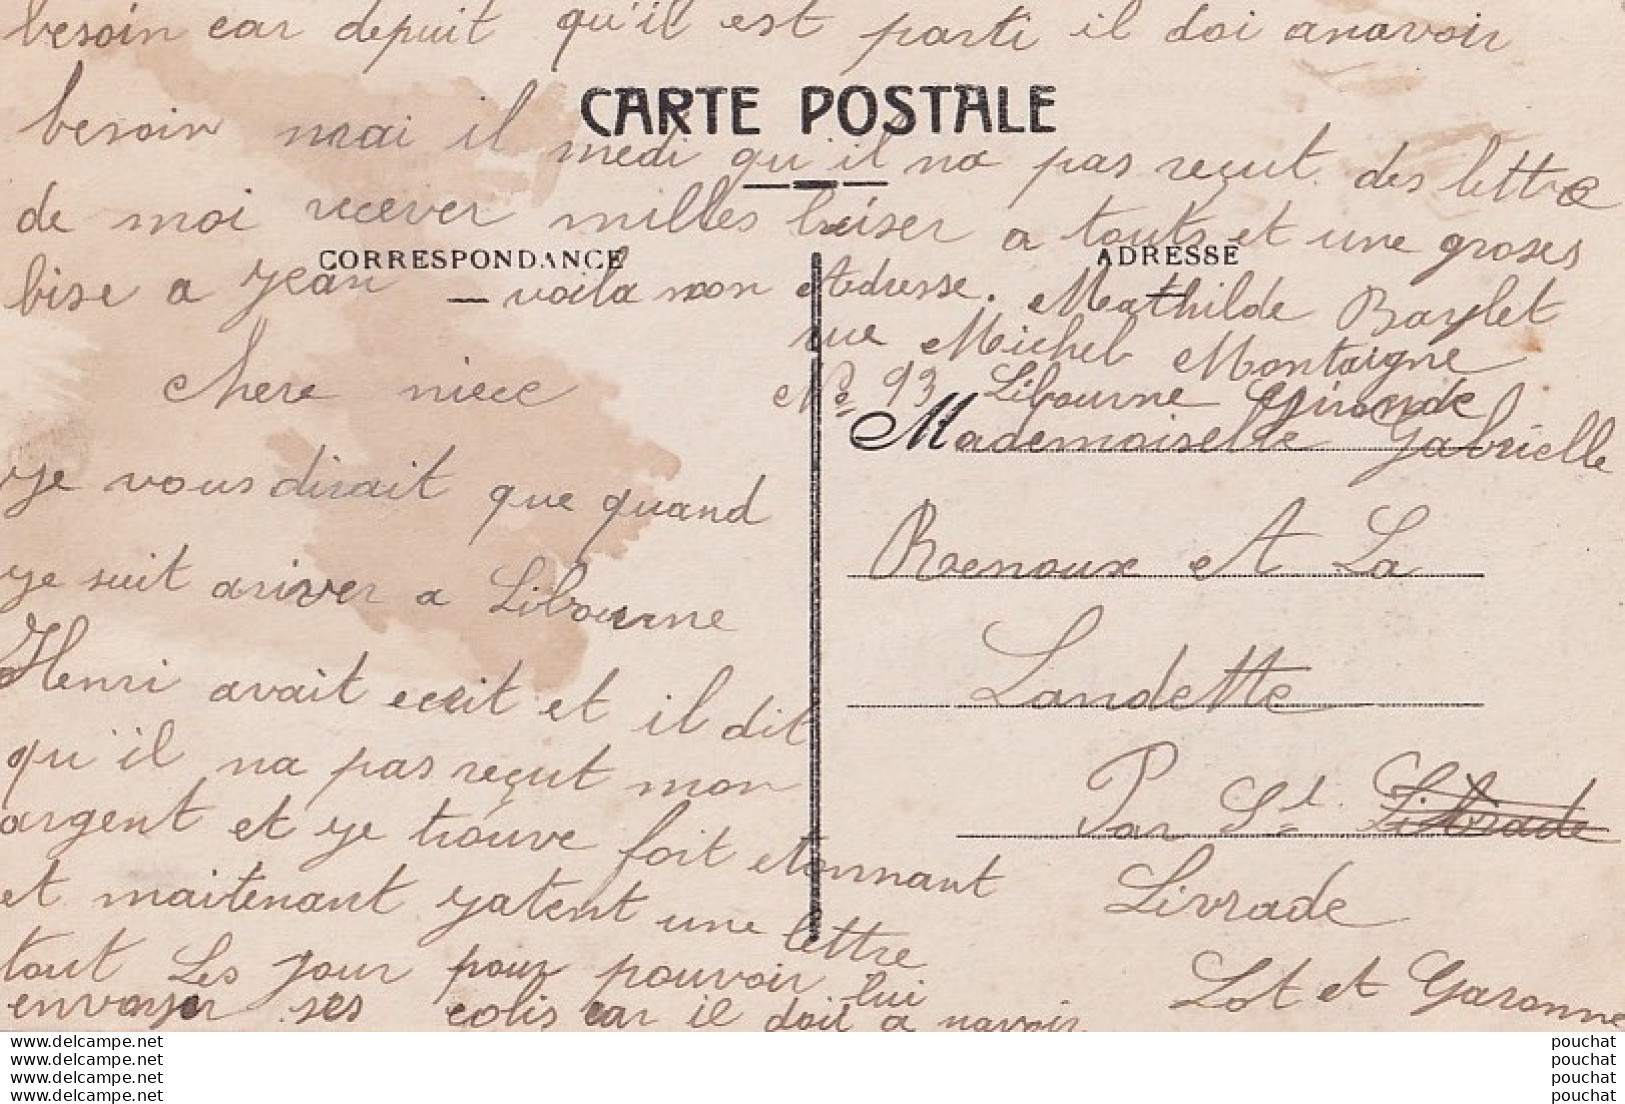 besoin car depuit qu'il est parti il doi anavoir
CARTE POSTALE
besoin mai il medi qu'il na pas reçut des lettre
de moi recever milles beiser a touts et une groses
CORRESPONDANCE
ADRESSE
bise a Jean voila mon Adresse. Mathilde Baylet
rue Michel Montaigne
No 93 Libourne Gironde
chere niece
Je vous dirait que quand
je suit ariver a Libourne
Henri avait ecrit et il dit
qu'il na pas reçut mon
argent et je trouve fort etonnant
et maitenant jatent une lettre
tout Les jour pour pouvoir lui
envoyer ses colis car il doit a navoir
Mademoiselle Gabrielle
Renoux A La
Landette
Par St. Livrade
Livrade
Lot et Garonne
www.delcampe.net
www.delcampe.net
www.delcampe.net
www.delcampe.net
pouchat
pouchat
pouchat
pouchat